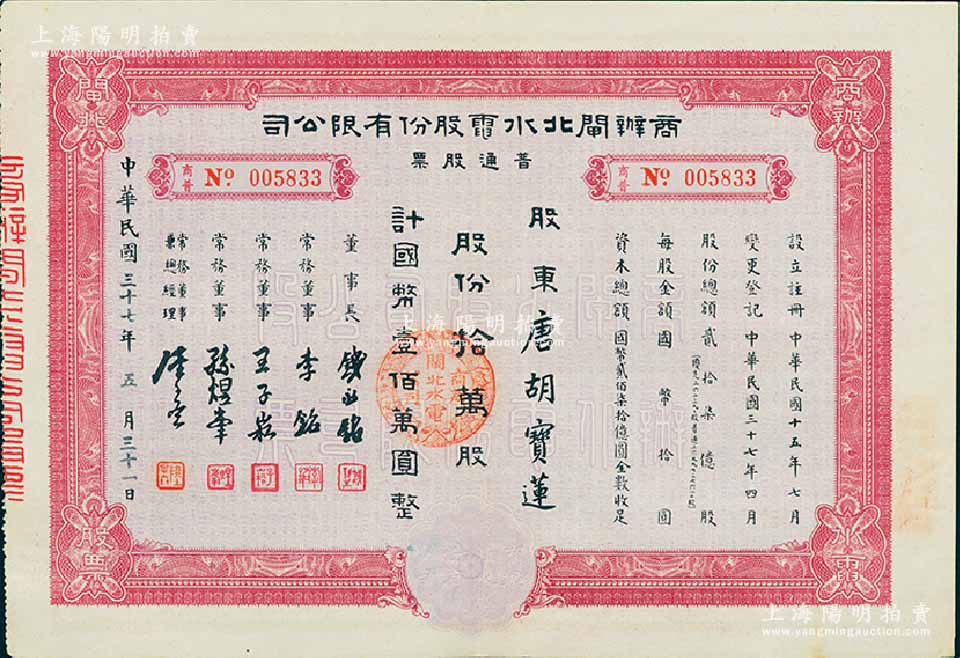 上海陽明拍賣
www.yangmingauction.com
商辦
閘北
水電
股票
商辦閘北水電股份有限公司
普通股票
商普 No. 005833
商普 No. 005833
設立註冊 中華民國十五年七月
變更登記 中華民國三十七年四月
股份總額貳拾柒億股
每股金額國幣拾圓
資本總額國幣貳佰柒拾億圓全數收足
股東唐胡寶蓮
股份拾萬股
計國幣壹佰萬圓整
董事長
常務董事 李銘
常務董事 王子崧
常務董事 孫煜峯
常務董事兼總經理
中華民國三十七年五月三十一日
上海陽明拍賣
www.yangmingauction.com
上海陽明拍賣
www.yangmingauction.com